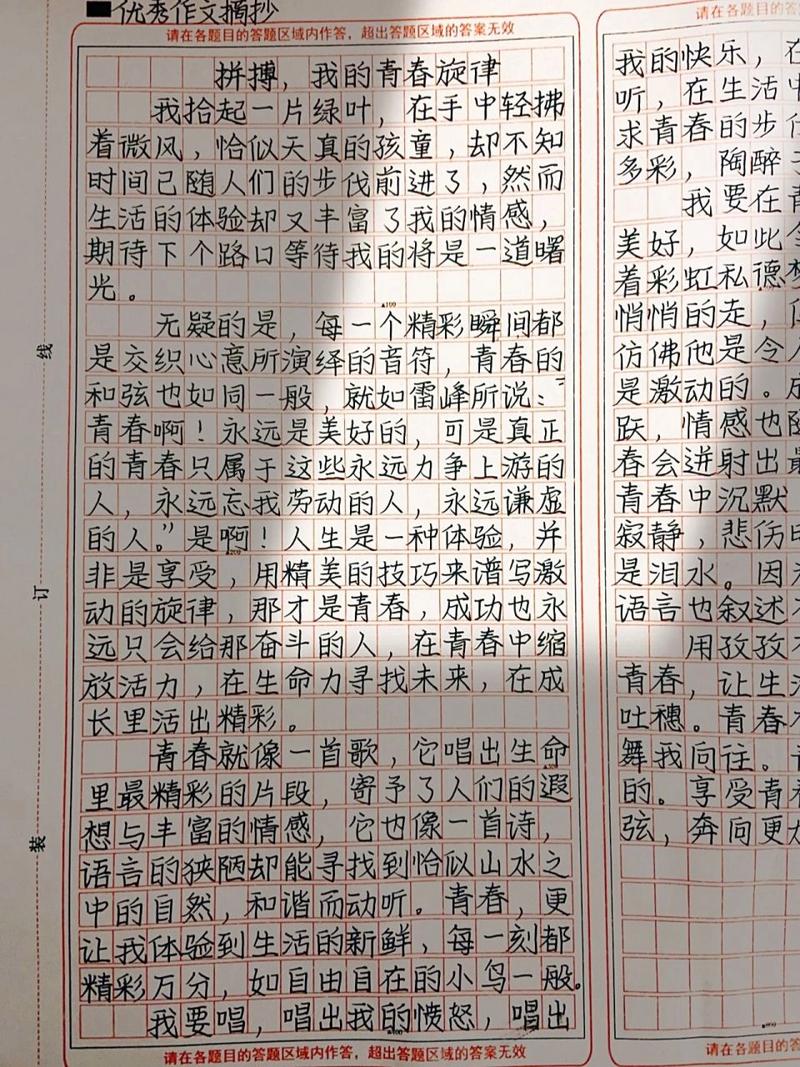 ■优秀作文摘抄
请在各题目的答题区域内作答，超出答题区域的答案无效
拼搏，我的青春旋律
我拾起一片绿叶，在手中轻拂
着微风，恰似天真的孩童，却不知
时间已随人们的步伐前进了，然而
生活的体验却又丰富了我的情感，
期待下个路口等待我的将是一道曙
光。
▲100
无疑的是，每一个精彩瞬间都
是交织心意所演绎的音符，青春的
和弦也如同一般，就如雷峰所说：“
青春啊！永远是美好的，可是真正
的青春只属于这些永远力争上游的
人，永远忘我劳动的人，永远谦虚
的人。”是啊！人生是一种体验，并
▲200
非是享受，用精美的技巧来谱写激
动的旋律，那才是青春，成功也永
远只会给那奋斗的人，在青春中缩
放活力，在生命力寻找未来，在成
长里活出精彩。
青春就像一首歌，它唱出生命
▲300
里最精彩的片段，寄予了人们的遐
想与丰富的情感，它也像一首诗，
语言的狭陋却能寻找到恰似山水之
中的自然，和谐而动听。青春，更
让我体验到生活的新鲜，每一刻都
精彩万分，如自由自在的小鸟一般。
我要唱，唱出我的愤怒，唱出
▲400
请在各题目的答题区域内作答，超出答题区域的答案无效
线
订
装
请在各题目的答
我的快乐，在
听，在生活中
求青春的步伐
多彩，陶醉于
我要在青
美好，如此
着彩虹私德梦
悄悄的走，
仿佛他是令人
是激动的。成
跃，情感也随
春会迸射出最
青春中沉默
寂静，悲伤
是泪水。因
语言也叙述不
用孜孜不
青春，让生
吐穗。青春
舞我向往。
的。享受青春
弦，奔向更
请在各题目的答